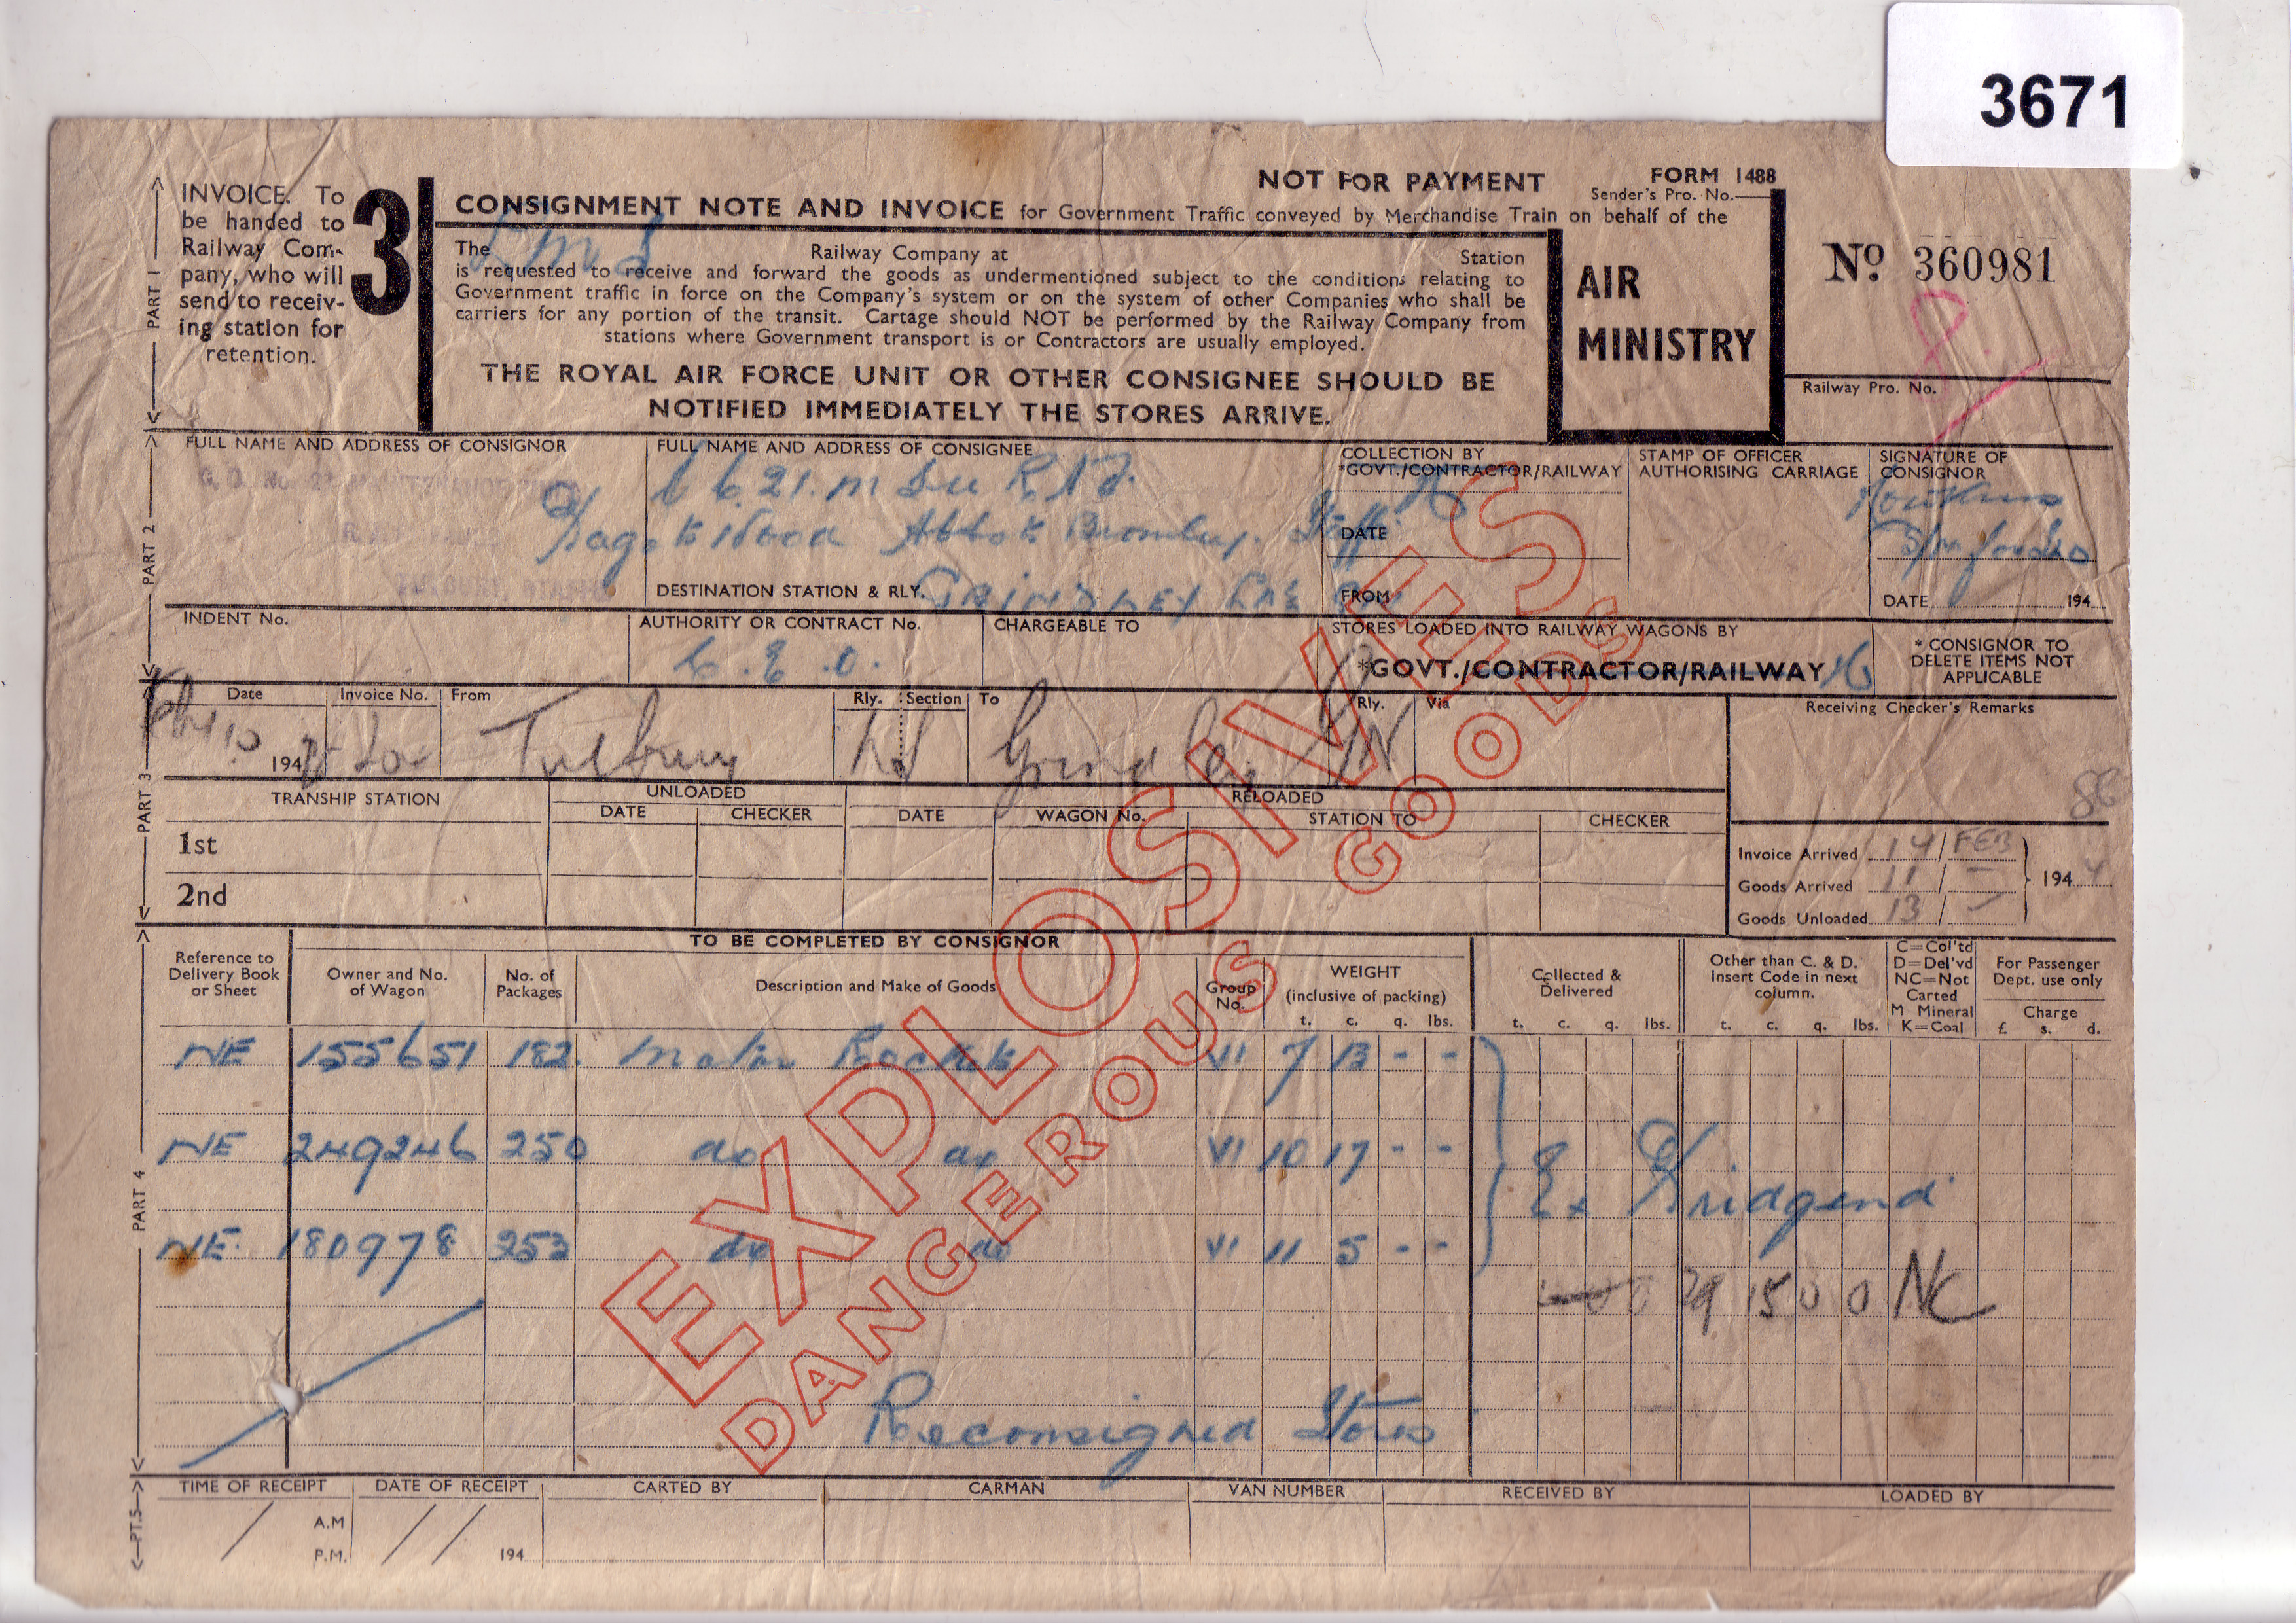 3671
NOT FOR PAYMENT
FORM 1488
Sender's Pro. No.
CONSIGNMENT NOTE AND INVOICE for Government Traffic conveyed by Merchandise Train on behalf of the
PART 1
INVOICE. To
be handed to
Railway Com-
pany, who will
send to receiv-
ing station for
retention.
3
The LMS Railway Company at Station
is requested to receive and forward the goods as undermentioned subject to the conditions relating to
Government traffic in force on the Company's system or on the system of other Companies who shall be
carriers for any portion of the transit. Cartage should NOT be performed by the Railway Company from
stations where Government transport is or Contractors are usually employed.
THE ROYAL AIR FORCE UNIT OR OTHER CONSIGNEE SHOULD BE
NOTIFIED IMMEDIATELY THE STORES ARRIVE.
AIR
MINISTRY
No 360981
Railway Pro. No.
PART 2
FULL NAME AND ADDRESS OF CONSIGNOR
FULL NAME AND ADDRESS OF CONSIGNEE
21. M
Wood Abbots Bromley. Staff
DESTINATION STATION & RLY. GRINDLEY
COLLECTION BY
*GOVT./CONTRACTOR/RAILWAY
DATE
FROM
STAMP OF OFFICER
AUTHORISING CARRIAGE
SIGNATURE OF
CONSIGNOR
DATE 194
INDENT No.
AUTHORITY OR CONTRACT No.
C.E.O.
CHARGEABLE TO
STORES LOADED INTO RAILWAY WAGONS BY
*GOVT./CONTRACTOR/RAILWAY
* CONSIGNOR TO
DELETE ITEMS NOT
APPLICABLE
PART 3
Date Invoice No. From Rly. Section To Rly. Via
10 194 Tutbury Grindley
Receiving Checker's Remarks
TRANSHIP STATION
UNLOADED
DATE CHECKER
RELOADED
DATE WAGON No. STATION TO CHECKER
1st
2nd
Invoice Arrived 14 / FEB
Goods Arrived 11 / -
Goods Unloaded 13 /
1944
PART 4
TO BE COMPLETED BY CONSIGNOR
Reference to
Delivery Book
or Sheet
Owner and No.
of Wagon
No. of
Packages
Description and Make of Goods
Group
No.
WEIGHT
(inclusive of packing)
t. c. q. lbs.
Collected &
Delivered
t. c. q. lbs.
Other than C. & D.
Insert Code in next
column.
t. c. q. lbs.
C=Col'td
D=Del'vd
NC=Not
Carted
M Mineral
K=Coal
For Passenger
Dept. use only
Charge
£ s. d.
NE 155651 182 Motor Rockets VI 7 13 - -
NE 249246 250 do do VI 10 17 - -
NE 180978 253 do do VI 11 5 - -
Ex Bridgend
29 15 0 0 NC
Reconsigned Stores
EXPLOSIVES
DANGEROUS GOODS
PT.5
TIME OF RECEIPT
A.M
P.M.
DATE OF RECEIPT
194
CARTED BY
CARMAN
VAN NUMBER
RECEIVED BY
LOADED BY